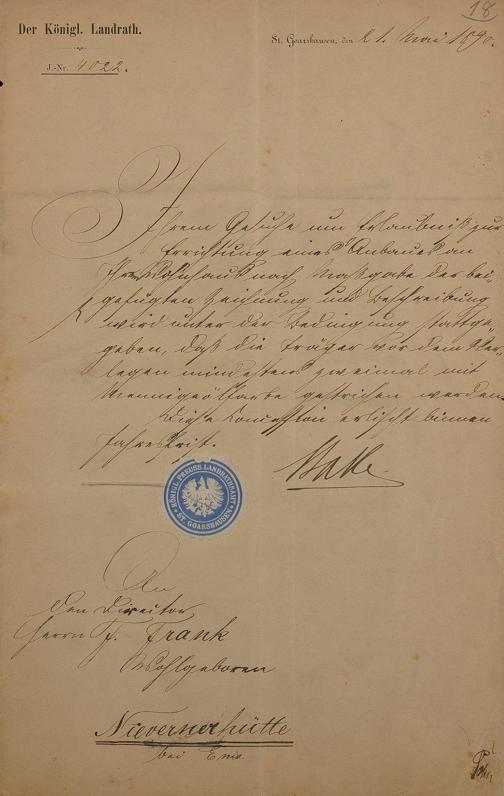 18
Der Königl. Landrath.
St. Goarshausen, den 21. Mai 1890.
J.-Nr. 4022.
Ihrem Gesuche um Erlaubniß zur
Errichtung eines Anbaues an
Ihr Wohnhaus nach Maßgabe der bei-
gefügten Zeichnung und Beschreibung
wird unter der Bedingung stattge-
geben, daß die Träger vor dem Ver-
legen mindestens zweimal mit
Mennigeölfarbe gestrichen werden.
Diese Concession erlischt binnen
Jahresfrist.
KÖNIGL. PREUSS. LANDRATHSAMT
* ST. GOARSHAUSEN *
An
den Director
Herrn F. Frank
Wohlgeboren
Nievernerhütte
bei Ems.